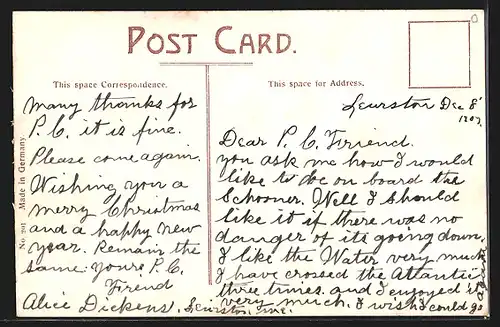 POST CARD.
This space Correspondence.
This space for Address.
No 201 Made in Germany
Many thanks for
P. C. it is fine.
Please come again.
Wishing you a
merry Christmas
and a happy new
year. Remain the
same. Yours P. C.
Firend
Alice Dickens, Lewiston, Me.
Lewiston Dec 8'
1907
Dear P. C. Firriend.
you ask me how I would
like to be on board the
Schooner. Well I should
like it if there was no
danger of its going down.
I like the Water very much
I have crossed the Atlantic
three times. and I enjoyed it
very much. I wish I could go